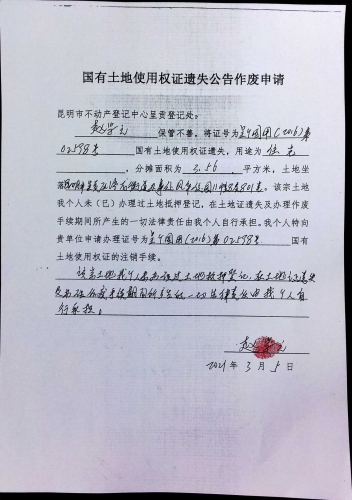 国有土地使用权证遗失公告作废申请
昆明市不动产登记中心呈贡登记处:
保管不善,将证号为呈国用(2016)第
02598号 国有土地使用权证遗失,用途为 住宅
,分摊面积为 3.56 平方米,土地坐
801室。该宗土地
我个人未(已)办理过土地抵押登记,在土地证遗失及办理作废
手续期间所产生的一切法律责任由我个人自行承担。我个人特向
贵单位申请办理证号为呈国用(2016)第02598号 国有
土地使用权证的注销手续。
该宗土地我个人未办理过土地抵押登记,在土地证遗失
及办理作废手续期间所产生的一切法律责任由我个人自
行承担。
2021 年 3 月 5 日